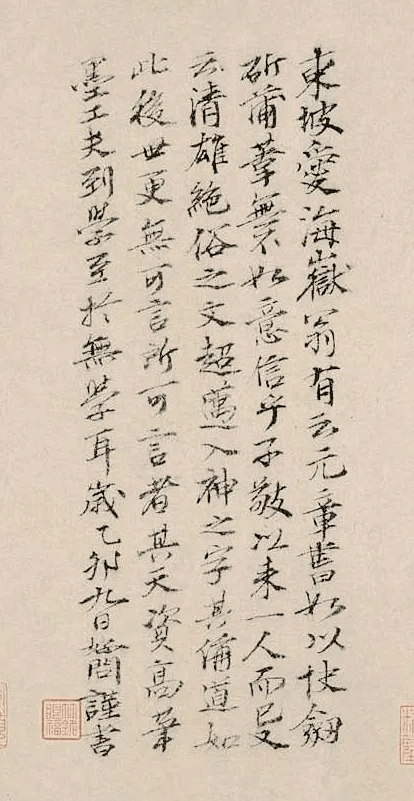 東坡愛海嶽翁有云元章書如以快劒
斫蒲葦無不如意信乎子敬以来一人而已又
云清雄絶俗之文超邁入神之字其偁道如
此後世更無可言所可言者其天資高筆
墨工夫到學至於無學耳歲乙卯九日好問謹書